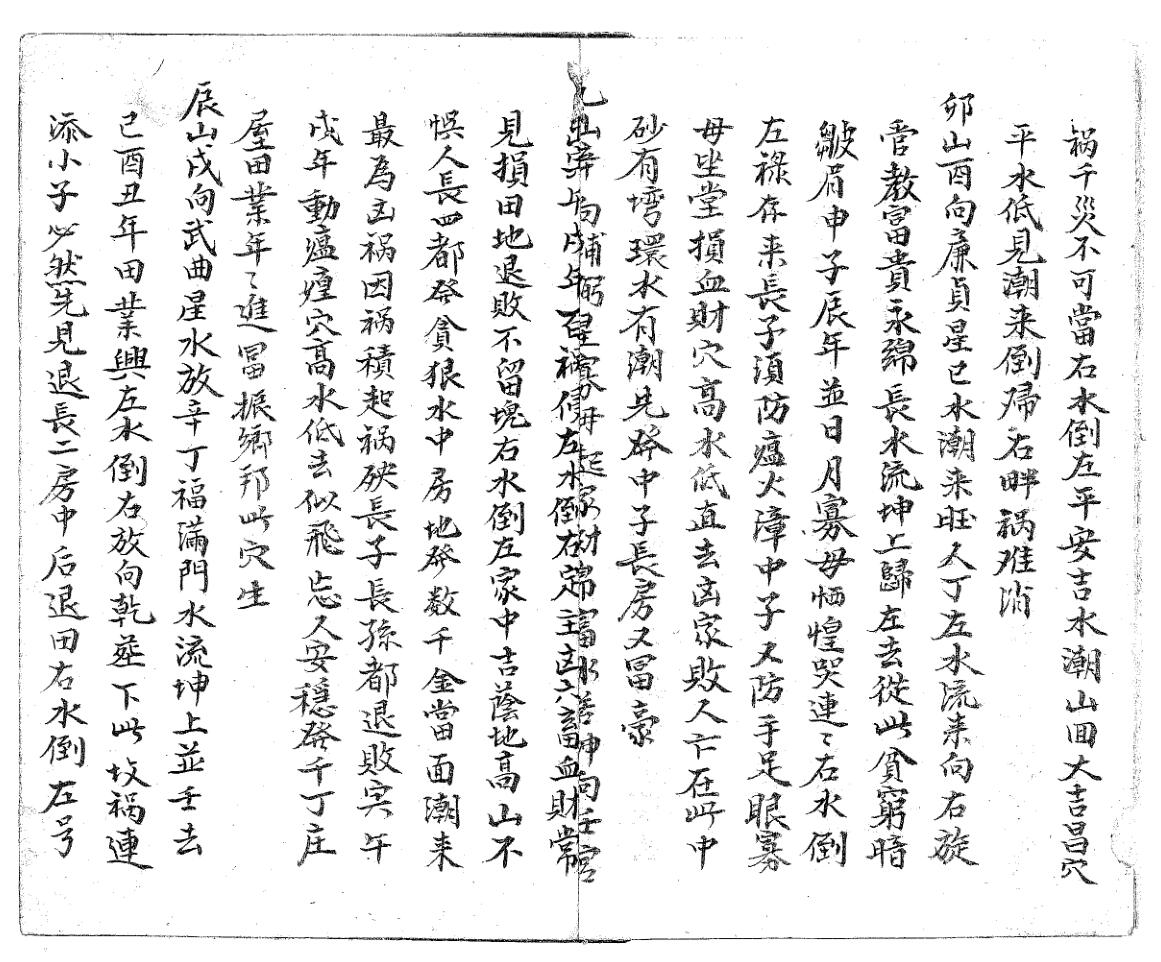 祸千災不可當右水倒左平安吉水潮山囬大吉昌穴
平水低見潮来倒歸右畔祸难消
卯山酉向廉貞星巳水潮来旺人丁左水流来向右旋
管教富貴永綿長水流坤上歸左去從此貧窮暗
皺眉申子辰年並日月寡母恓惶哭連〻右水倒
左禄存来長子須防瘟火漳中子又防手足眼寡
母坐堂損血財穴高水低直去凶家敗人亡在此中
砂有塆環水有潮先發中子長房又冨豪
山向輔弼星左水倒右主凶六畜血財常
見損田地退敗不留塊右水倒左家中吉蔭地高山不
悞人長四都發貪狼水中房地發数千金當面潮来
最為凶祸因祸積起祸殃長子長孫都退敗寅午
戌年動瘟㾮穴高水低去似飛忘人安穩發千丁庄
屋田業年〻進冨振鄉邦此穴生
辰山戌向武曲星水放辛丁福滿門水流坤上並壬去
巳酉丑年田業興左水倒右放向乾塟下此坟祸連
添小子必然先見退長二房中后退田右水倒左号